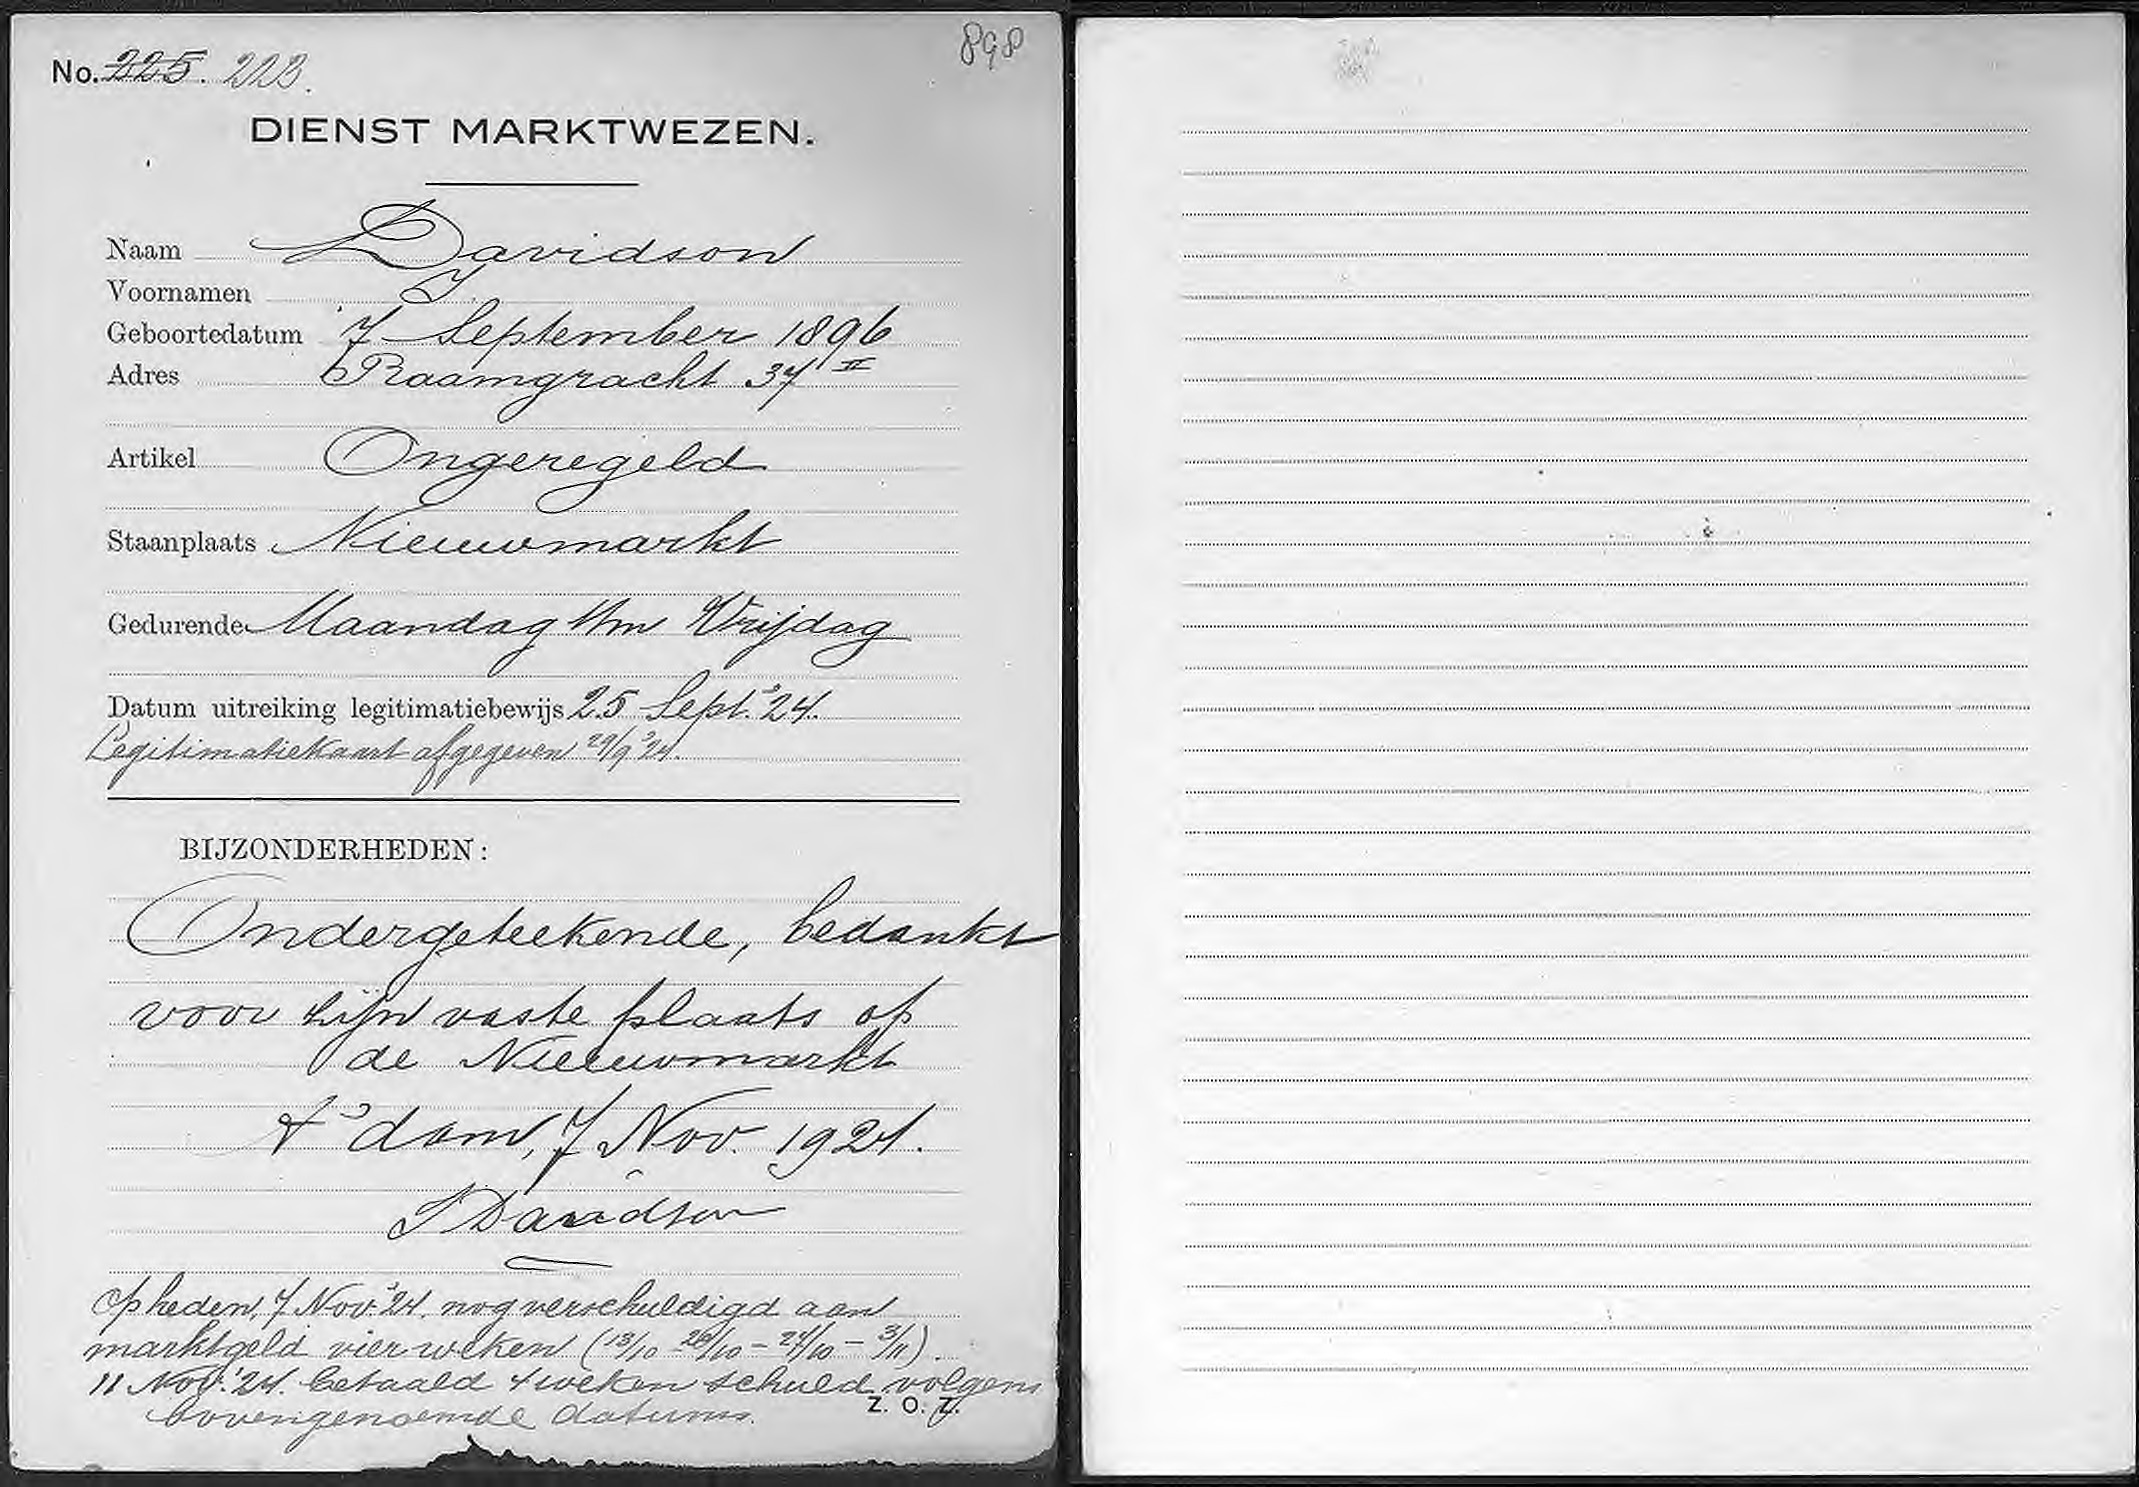 No. 225. 223.
898
DIENST MARKTWEZEN.
Naam Davidson
Voornamen I.
Geboortedatum 7 September 1896
Adres Raamgracht 37 II
Artikel Ongeregeld
Staanplaats Nieuwmarkt
Gedurende Maandag t/m Vrijdag
Datum uitreiking legitimatiebewijs 25 Sept. '24.
Legitimatiekaart afgegeven 29/9 '24.
BIJZONDERHEDEN:
Ondergeteekende, bedankt
voor zijn vaste plaats op
de Nieuwmarkt
A'dam, 7 Nov. 1924.
I Davidson
Op heden, 7 Nov. '24. nog verschuldigd aan
marktgeld vier weken (13/10 - 20/10 - 27/10 - 3/11).
11 Nov. '24. betaald 4 weken schuld volgens
bovengenoemde datums.
Z. O. Z.